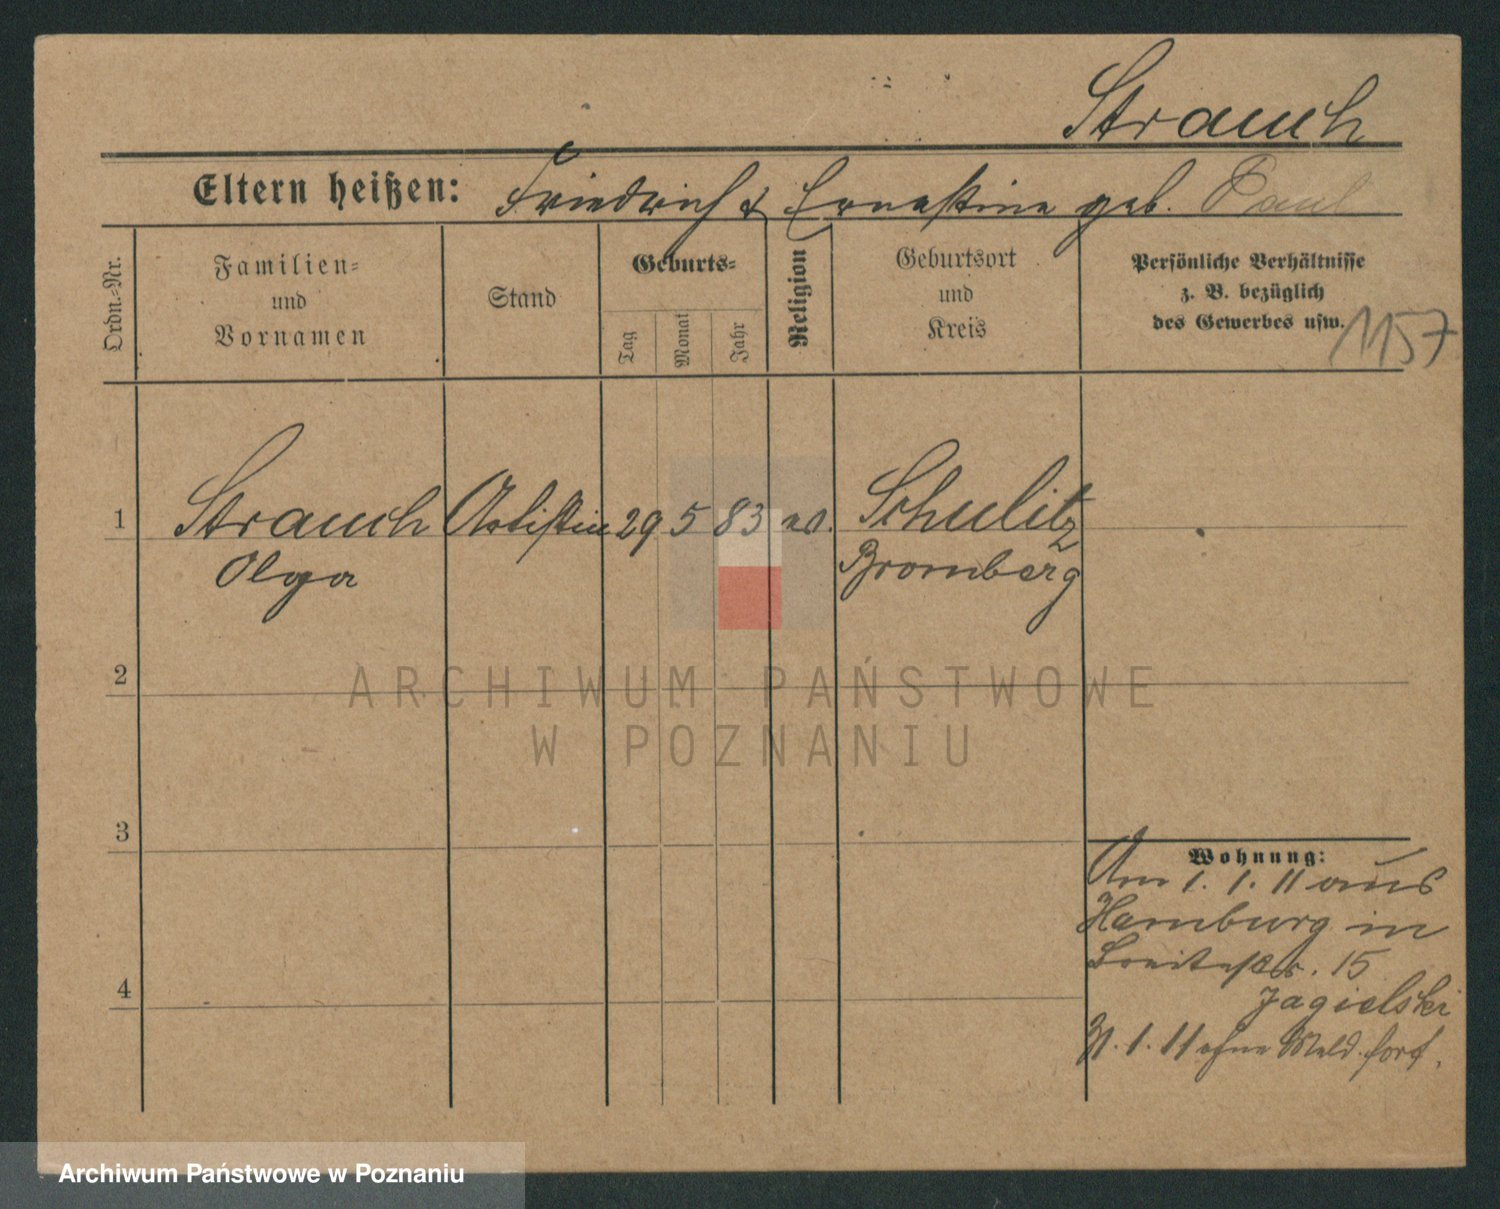 Strauch
Eltern heißen: Friedrich & Ernestine geb. Paul
Ordn.=Nr.
Familien=
und
Vornamen
Stand
Geburts=
Tag
Monat
Jahr
Religion
Geburtsort
und
Kreis
Persönliche Verhältnisse
z. B. bezüglich
des Gewerbes usw.
1157
1 Strauch Artistin 29 5 83 ev. Schulitz
Olga Bromberg
2
ARCHIWUM PAŃSTWOWE
W POZNANIU
3
Wohnung:
Am 1. 1. 11 aus
Hamburg in
Breitestr. 15
4
Jagielski
1. 11 ohne Meld. fort.
Archiwum Państwowe w Poznaniu